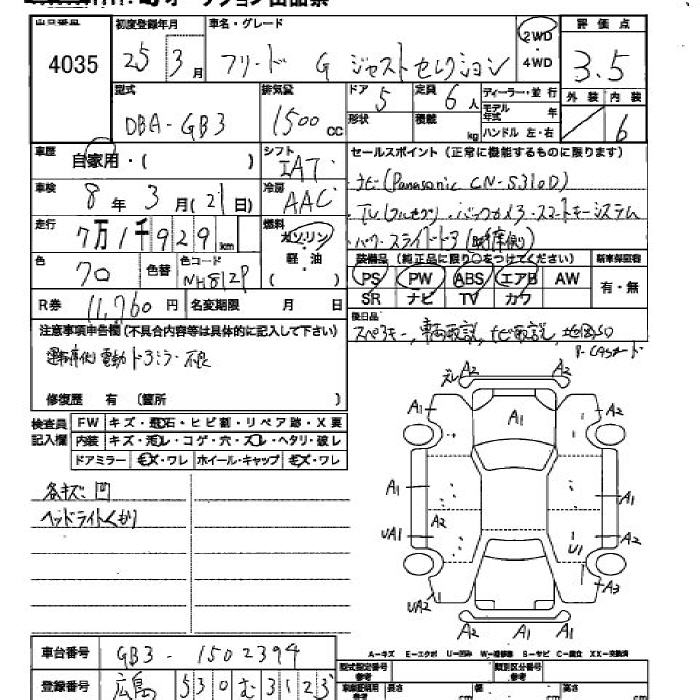 4035
初度登録年月 車名・グレード 評価点
25 3月 フリード G ジャストセレクション 2WD・4WD 3.5
型式 排気量 ドア 定員 ディーラー・並行 外装 内装
DBA-GB3 1500cc 5 6人 モデル年式 年 6
形状 積載 kg ハンドル 左・右
車歴 自家用・( ) シフト IAT セールスポイント(正常に機能するものに限ります)
車検 8年 3月(21日) 冷房 AAC ナビ(Panasonic CN-S310D)
TV(フルセグ)・バックカメラ・スマートキーシステム
走行 7万1千929km 燃料 ガソリン・軽油 パワースライドドア(助手席側)
装備品(純正品に限り○をつけてください) 新車保証書
色 色替 色コード NH812P PS PW ABS エアB AW 有・無
SR ナビ TV カワ
R券 11,760円 名変期限 月 日 後日品
スペアキー, 車両取説, ナビ取説, 地図SD
B-CASカード
注意事項申告欄(不具合内容等は具体的に記入して下さい)
運転席側電動ドアミラー不良
修復歴 有 (箇所 )
検査員記入欄 FW キズ・飛石・ヒビ割・リペア跡・X要
内装 キズ・汚レ・コゲ・穴・スレ・ヘタリ・破レ
ドアミラー キズ・ワレ ホイール・キャップ キズ・ワレ
各キズ凹
ヘッドライトくもり
ズレ A2 A2
A1 A1 A2
A1 A1
A2
UA1 U1 A2
UA2 A3
A2 A1
A-キズ E-エクボ U-凹み W-補修跡 S-サビ C-腐食 XX-交換済
車台番号 GB3-1502394 型式指定番号 参考 類別区分番号 参考
登録番号 広島 530 む 3123 車庫証明用参考 長さ cm 幅 cm 高さ cm